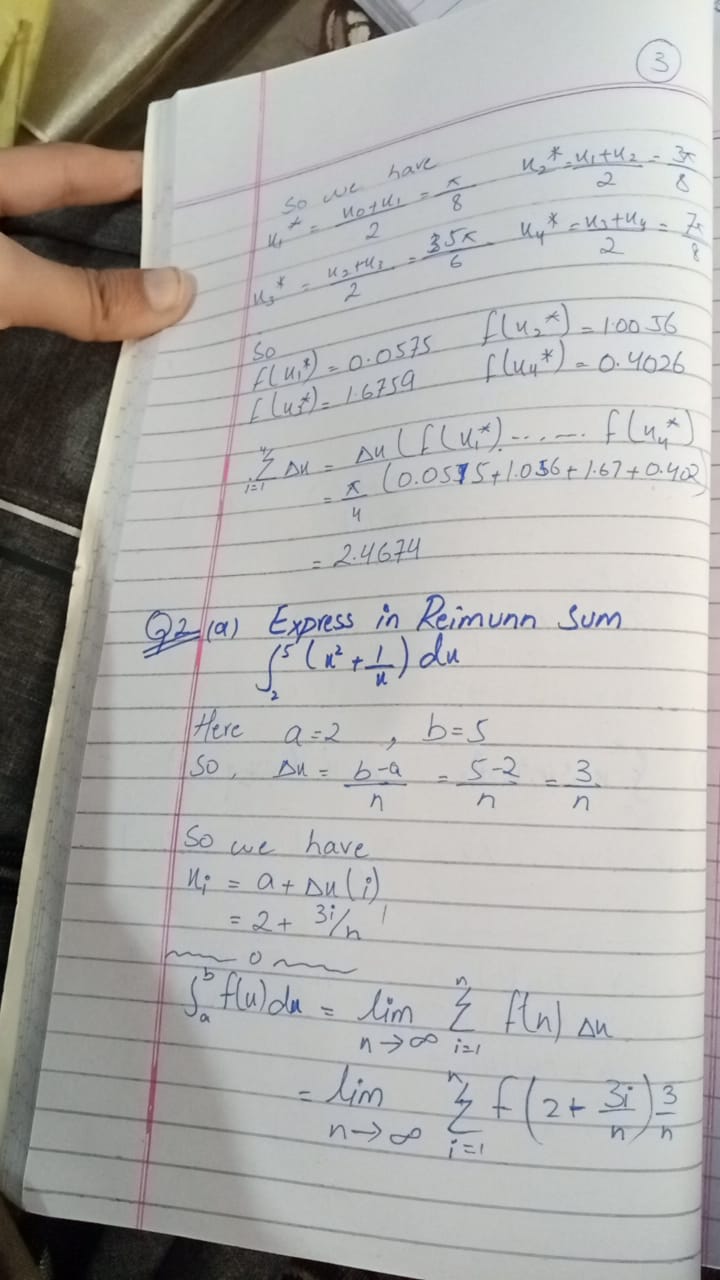 3
So we have
x₁* = (x₀+x₁)/2 = π/8    x₂* = (x₁+x₂)/2 = 3π/8
x₃* = (x₂+x₃)/2 = 5π/6    x₄* = (x₃+x₄)/2 = 7π/8
So
f(x₁*) = 0.0575    f(x₂*) = 1.0056
f(x₃*) = 1.6759    f(x₄*) = 0.4026
∑ᵢ₌₁⁴ Δx = Δx (f(x₁*) ...... f(x₄*)
= π/4 (0.0575+1.056+1.67+0.402)
= 2.4674
Q2 (a) Express in Reimunn Sum
∫₂⁵ (x² + 1/x) dx
Here a=2 , b=5
So, Δx = (b-a)/n = (5-2)/n = 3/n
So we have
xᵢ = a + Δx(i)
= 2 + 3i/n
o
∫ₐᵇ f(x)dx = lim n→∞ ∑ᵢ₌₁ⁿ f(n) Δx
= lim n→∞ ∑ᵢ₌₁ⁿ f(2 + 3i/n) 3/n